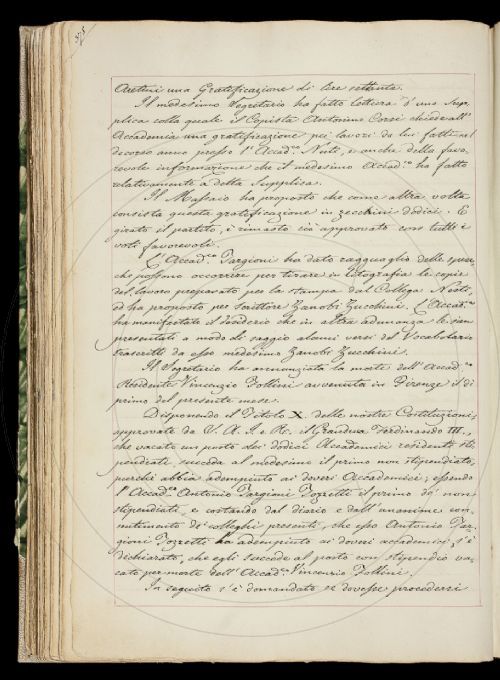 Aretini una Gratificazione di lire settanta.
Il medesimo Segretario ha fatto lettura d'una Sup-
plica colla quale il Copista Antonino Corsi chiede all'
Accademia una gratificazione pei lavori da lui fatti nel
decorso anno presso l'Accad.co Nesti, e anche della favo-
revole informazione che il medesimo Accad.co ha fatto
relativamente a detta Supplica.
Il Massaio ha proposto che come altra volta
consista questa gratificazione in zecchini dodici. E
girato il partito, è rimasto ciò approvato con tutti i
voti favorevoli.
L'Accad.co Targioni ha dato ragguaglio delle spese
che possono occorrere per tirare in litografia le copie
del lavoro preparato per la stampa dal Collega Nesti,
ed ha proposto per Scrittore Zanobi Zucchini. L'Accad.co
ha manifestato il desiderio che in altra adunanza le sian
presentati a modo di saggio alcuni versi del Vocabolario
trascritti da esso medesimo Zanobi Zucchini.
Il Segretario ha annunziata la morte dell'Accad.co
Residente Vincenzio Follini avvenuta in Firenze il dì
primo del presente mese.
Disponendo il Titolo X. delle nostre Costituzioni,
approvate da S. A. I. e R. il Granduca Ferdinando III.,
che vacato un posto dei dodici Accademici residenti sti-
pendiati succeda al medesimo il primo non stipendiato,
perchè abbia adempiuto ai doveri Accademici; essendo
l'Accad.co Antonio Targioni Tozzetti il primo de' non
stipendiati, e costando dal diario e dall'unanime con-
sentimento de' colleghi presenti, che esso Antonio Tar-
gioni Tozzetti ha adempiuto ai doveri accademici, s'è
dichiarato, che egli succede al posto con stipendio va-
cato per morte dell'Accad.co Vincenzio Follini.
In seguito s'è domandato se dovesse procedersi